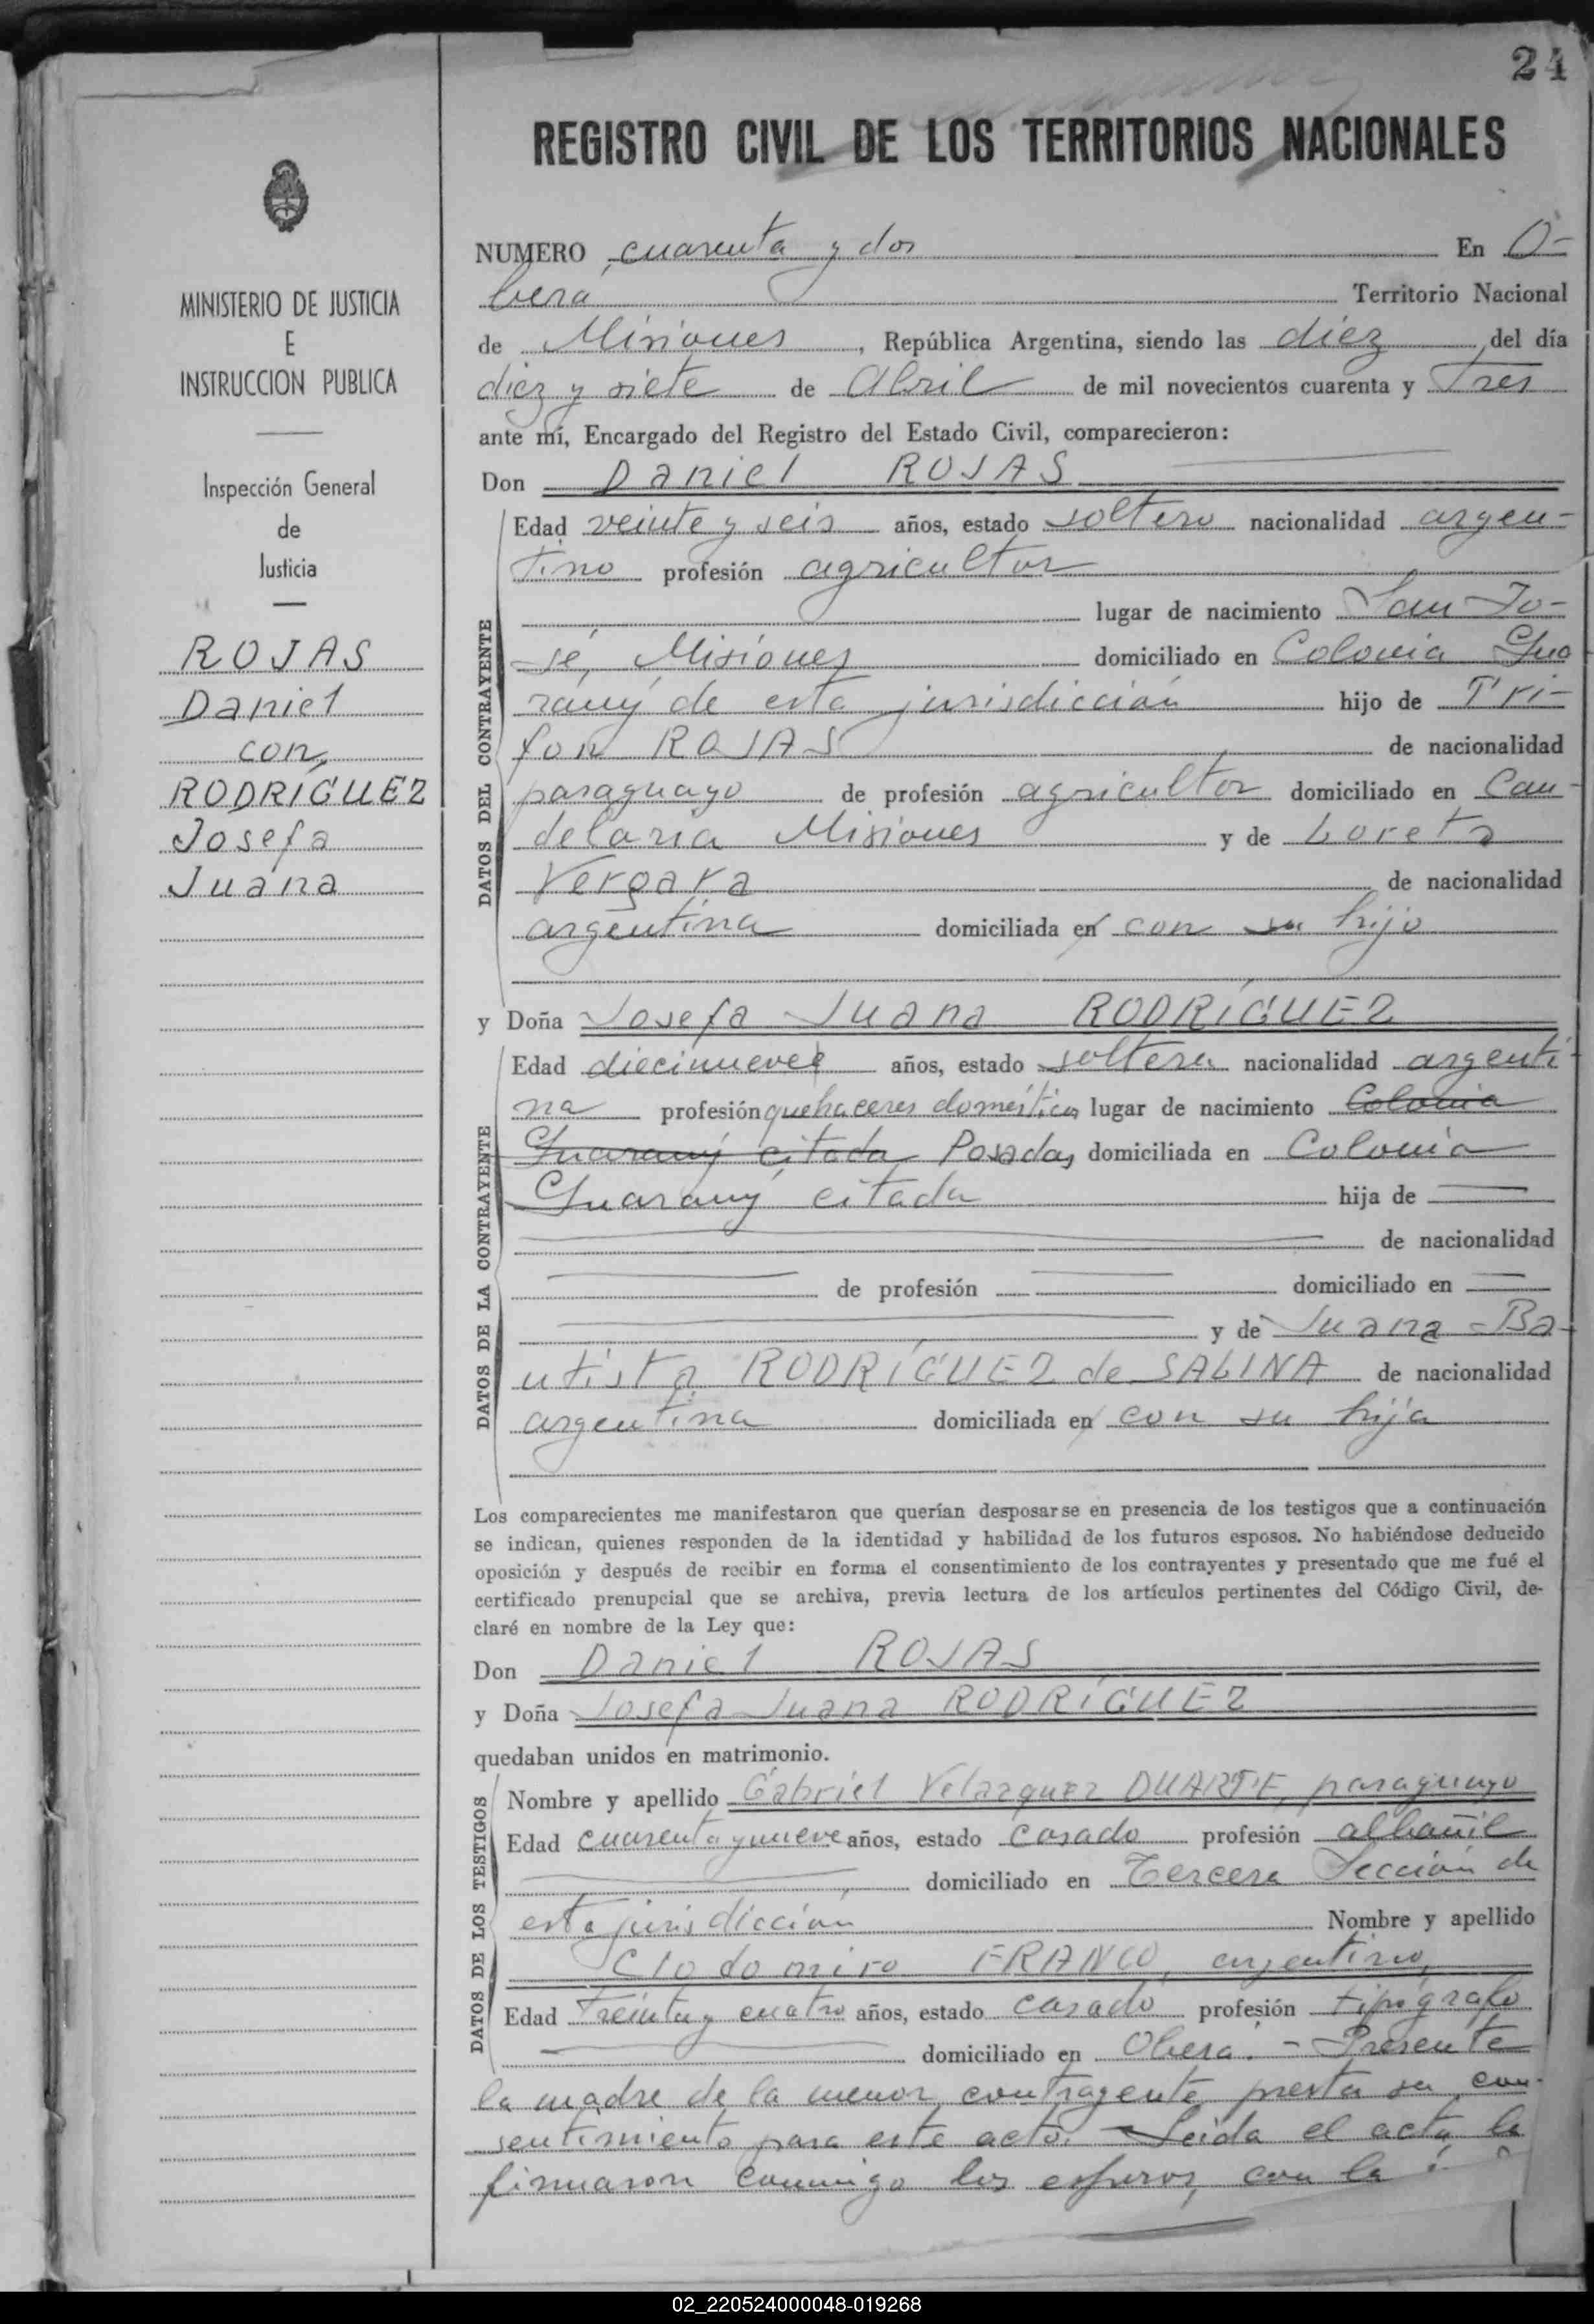 24
REGISTRO CIVIL DE LOS TERRITORIOS NACIONALES
MINISTERIO DE JUSTICIA
E
INSTRUCCION PUBLICA
Inspección General
de
Justicia
ROJAS
Daniel
con
RODRÍGUEZ
Josefa
Juana
NUMERO cuarenta y dos En O-
bera Territorio Nacional
de Misiones, República Argentina, siendo las diez del día
diez y siete de Abril de mil novecientos cuarenta y Tres
ante mí, Encargado del Registro del Estado Civil, comparecieron:
Don Daniel ROJAS
DATOS DEL CONTRAYENTE
Edad veinte y seis años, estado soltero nacionalidad argen-
tino profesión agricultor
lugar de nacimiento San Jo-
sé, Misiones domiciliado en Colonia Gua
rany de esta jurisdicción hijo de Tri-
fon ROJAS de nacionalidad
paraguayo de profesión agricultor domiciliado en Can-
delaria Misiones y de Loreta
Vergara de nacionalidad
argentina domiciliada en con su hijo
y Doña Josefa Juana RODRÍGUEZ
DATOS DE LA CONTRAYENTE
Edad diecinueve años, estado soltera nacionalidad argenti-
na profesión quehaceres domésticos lugar de nacimiento Colonia
Guarany citada Posadas domiciliada en Colonia
Guarany citada hija de
de nacionalidad
de profesión domiciliado en
y de Juana Ba-
utista RODRÍGUEZ de SALINA de nacionalidad
argentina domiciliada en con su hija
Los comparecientes me manifestaron que querían desposarse en presencia de los testigos que a continuación
se indican, quienes responden de la identidad y habilidad de los futuros esposos. No habiéndose deducido
oposición y después de recibir en forma el consentimiento de los contrayentes y presentado que me fué el
certificado prenupcial que se archiva, previa lectura de los artículos pertinentes del Código Civil, de-
claré en nombre de la Ley que:
Don Daniel ROJAS
y Doña Josefa Juana RODRÍGUEZ
quedaban unidos en matrimonio.
DATOS DE LOS TESTIGOS
Nombre y apellido Gabriel Velazquez DUARTE, paraguayo
Edad cuarenta y nueve años, estado casado profesión albañil
domiciliado en Tercera Sección de
esta jurisdicción Nombre y apellido
Clodomiro FRANCO, argentino,
Edad Treinta y cuatro años, estado casado profesión tipógrafo
domiciliado en Oberá. - Presente
la madre de la menor contrayente, presta su con-
sentimiento para este acto. Leida el acta la
firmaron conmigo los esposos, con la
02_220524000048-019268